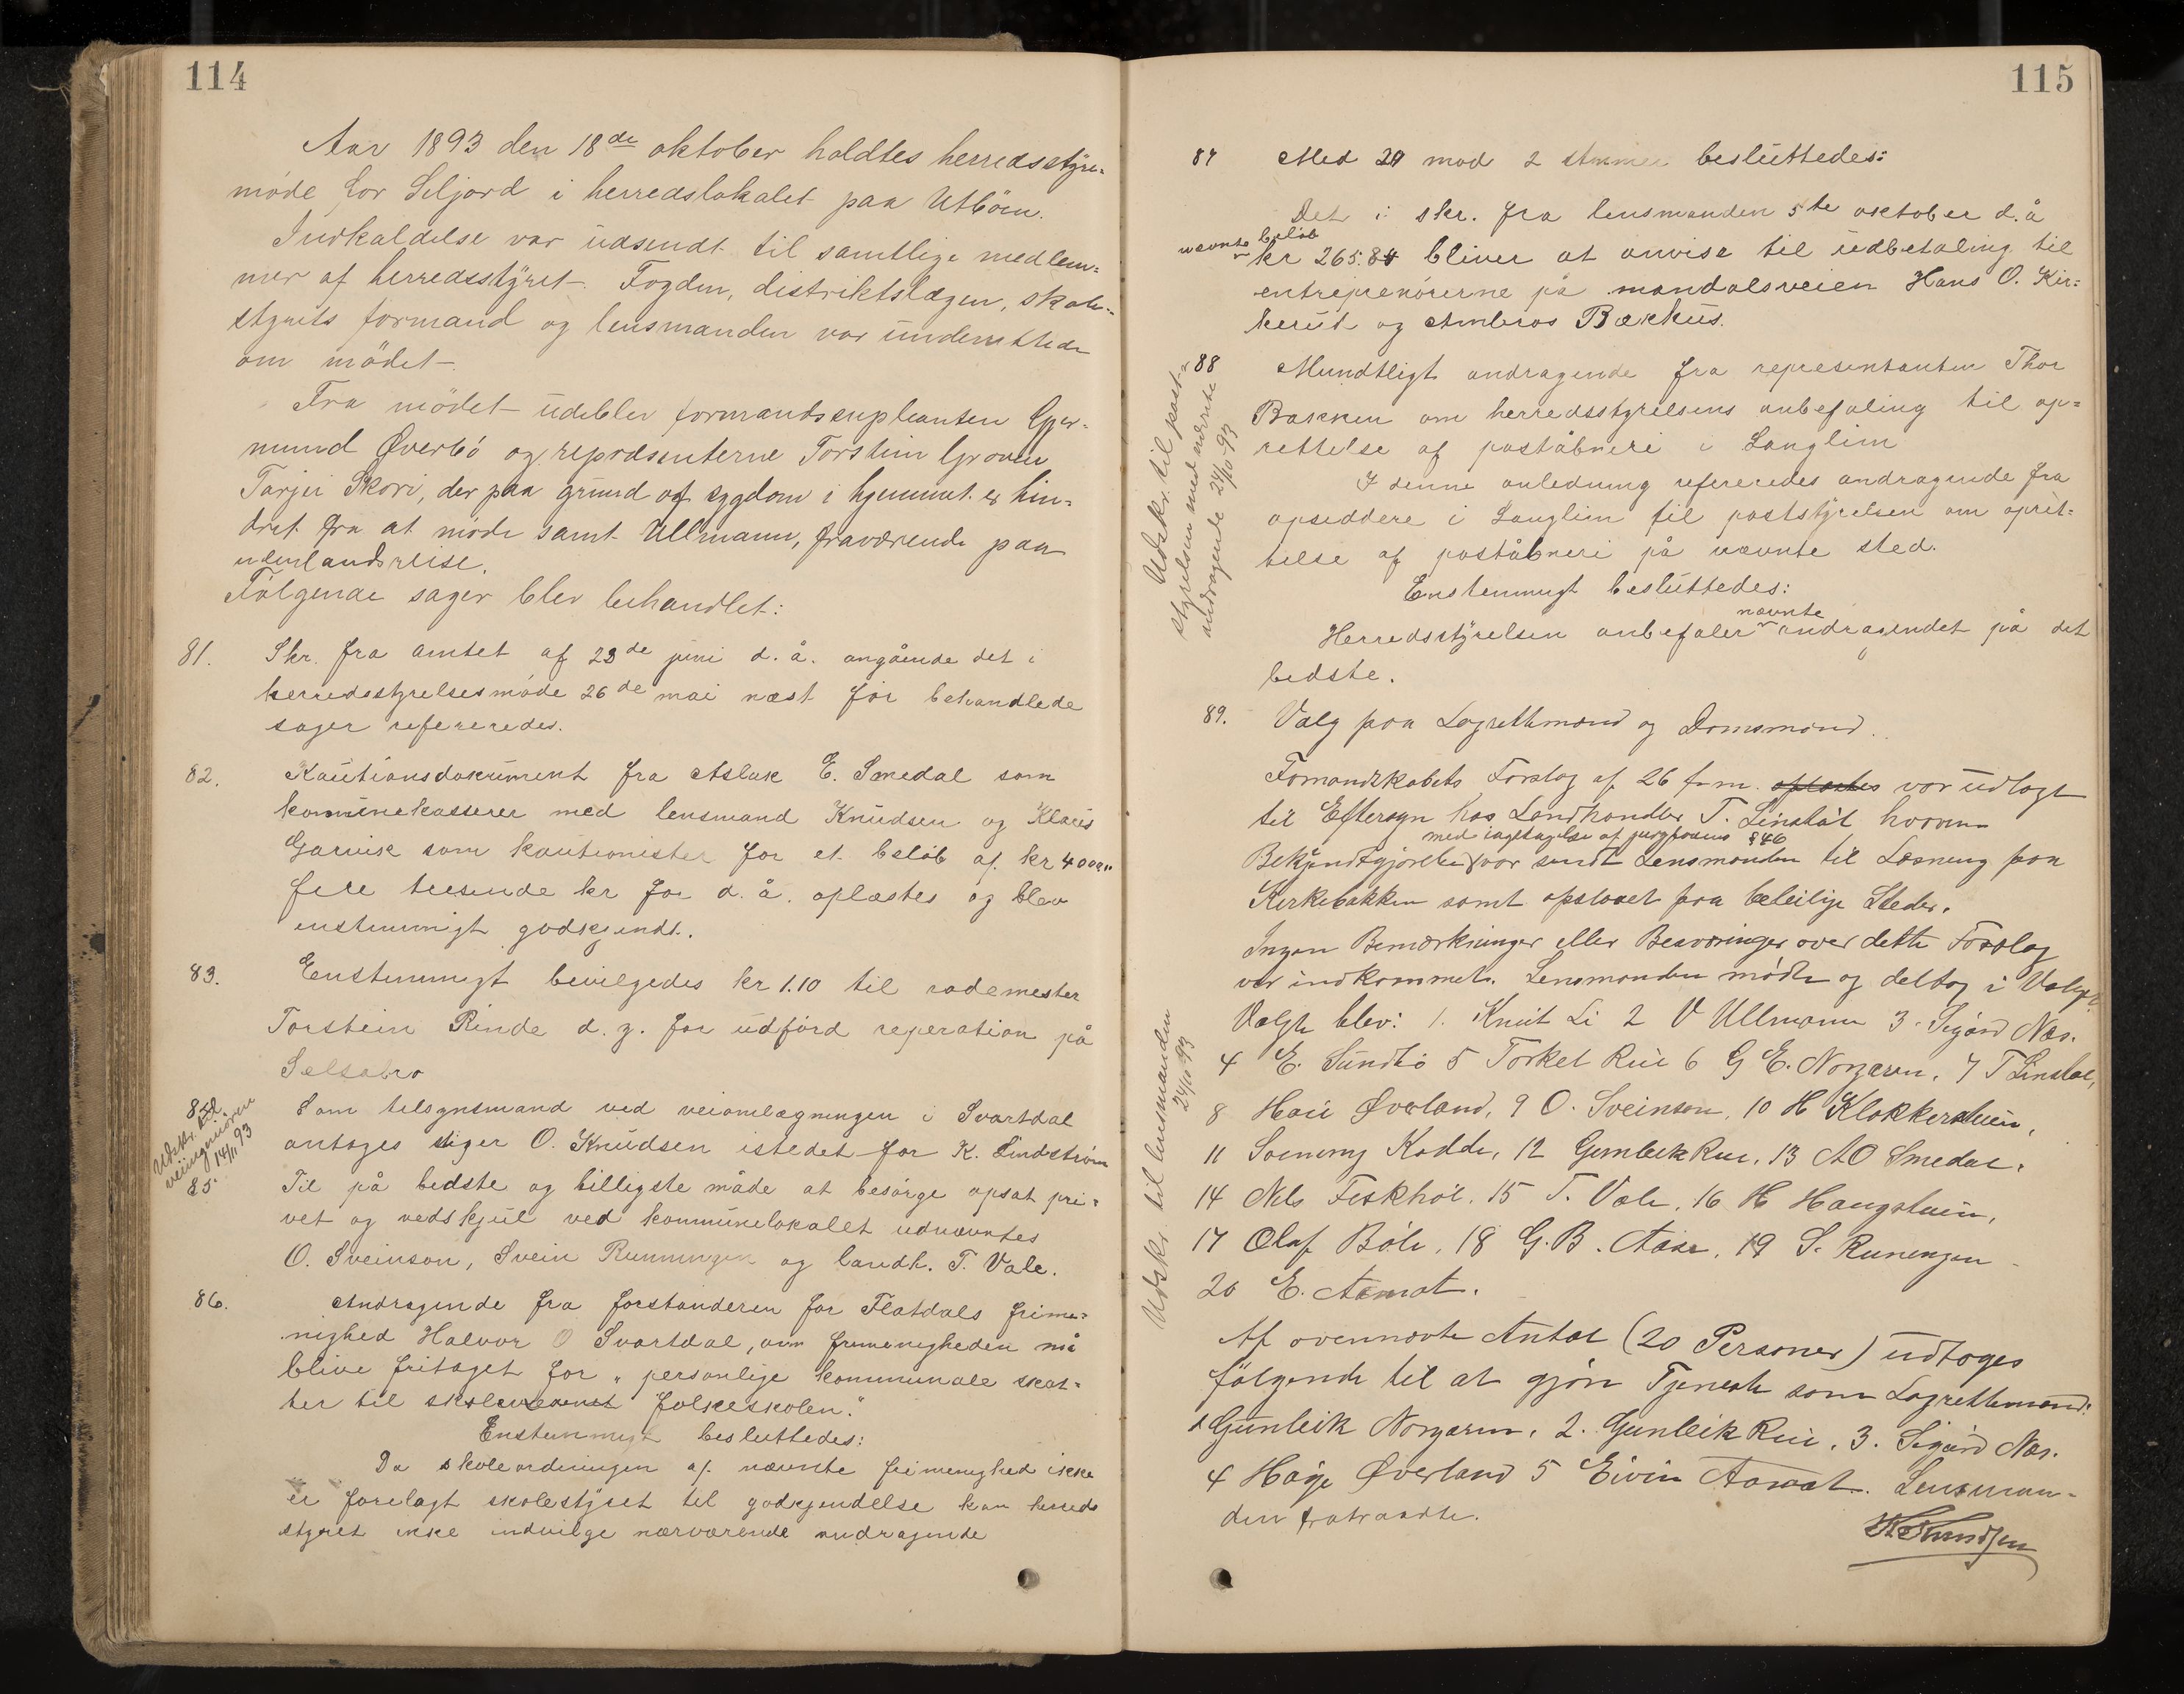 114
Aar 1893 den 18de oktober holdtes herredsstyre=
møde for Seljord i herredslokalet paa Utbøen.
Indkaldelse var udsendt til samtlige medlem=
mer af herredsstyret. Fogden, distriktslægen, skole=
styrets formand og lensmanden var underrettede
om mödet.
Fra mödet udeblev formandssupleanten Gjer=
mund Øverbö og repræsenterne Torstein Groven
Tarjei Skori, der paa grund af sygdom i hjemmet er hin=
dret fra at möde samt Ullmann, fraværende paa
udenlandsreise.
Følgende sager blev behandlet:
81. Skr. fra amtet af 23de juni d. å. angående det i
herredsstyrelsesmöde 26de mai næst för behandlede
sager refereredes.
82. Kautionsdokument fra Aslak E. Smedal som
kommunekasserer med lensmand Knudsen og Klaus
Garvik som kautionister for et beløb af kr 4000,,
fire tusende kr for d. å. oplæstes og blev
enstemmigt godkjendt.
83. Eenstemmigt bevilgedes kr 1.10 til rodemester
Torstein Rinde d. y. for udförd reperation på
Selsabro
84
Udskr. til
veiingeniören
14/11 93
Som tilsynsmand ved veiomlægningen i Svartdal
antages siger O. Knudsen istedet for K. Lindström
85. Til på bedste og billigste måde at besörge opsat pri=
vet og vedskjul ved kommunelokalet udnævntes
O. Sveinson, Svein Runningen og landh. T. Vale.
86. Andragende fra forstanderen for Flatdals frime=
nighed Halvor O Svartdal, om frimenigheden må
blive fritaget for „personlige kommunale skat=
ter til skolevæsenet folkeskolen."
Enstemmigt besluttedes:
Da skoleordningen af nævnte frimenighed ikke
er forelagt skolestyret til godkjendelse kan herreds
styret ikke indvilge nærværende andragende
115
87 Med 21 mod 2 stemmer besluttedes:
Det i skr. fra lensmanden 5te oktober d.å
nævnte beløb
kr 265.84 bliver at anvise til udbetaling til
entreprenörerne på mandalsveien Hans O. Kir=
kerut og Ambros Bækhus.
88 Mundtligt andragende fra representanten Thor
Bakken om herredsstyrelsens anbefaling til op=
rettelse af poståbneri i Langlim
I denne anledning refereredes andragende fra
opsiddere i Langlim til poststyrelsen om opret=
telse af poståbneri på nævnte sted.
Enstemmigt besluttedes:
nævnte
Herredsstyrelsen anbefaler andragendet på det
bedste.
Udskr. til post=
styrelsen med nævnte
andragende 24/10 93
89. Valg paa Lagrethmænd og Domsmænd.
Formandskabets Forslag af 26 f.m. oplæstes var udlagt
til Eftersyn hos Landhandler T. Linaläl hvorom
med iagttagelse af jurylovens §46
Bekjendtgjörelse var sendt Lensmanden til Læsning paa
Kirkebakken samt opslaaet paa beleilige Steder.
Ingen Bemærkninger eller Besværinger over dette Forslag
var indkommet. Lensmanden mødte og deltog i Valget.
Udskr. til lensmanden
24/10 93
Valgte blev: 1. Knut Li 2 V Ullmann 3. Sigurd Næs.
4 E. Sundbö 5 Torkel Rui 6 G E. Norgaren. 7 T Linalæl,
8 Haie Øverland, 9 O. Sveinson, 10 H Klokkerstein,
11 Sveinung Kodde, 12 Gunleik Rui, 13 AO Smedal.
14 Nils Fiskhöl. 15 T. Vale. 16 H Haugstuein,
17 Olaf Böle. 18 G.B. Aase. 19 S. Runengen
20 E. Aamot.
Af ovennævnte Antal (20 Personer) udtoges
følgende til at gjøre Tjeneste som Lagrethmænd:
1 Gunleik Norgaren. 2. Gunleik Rui. 3. Sigurd Næs.
4 Haije Øverland 5 Eivin Aamot. Lensman=
den fratraadte.
K Knudsen